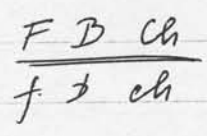 F B Ch
f b ch